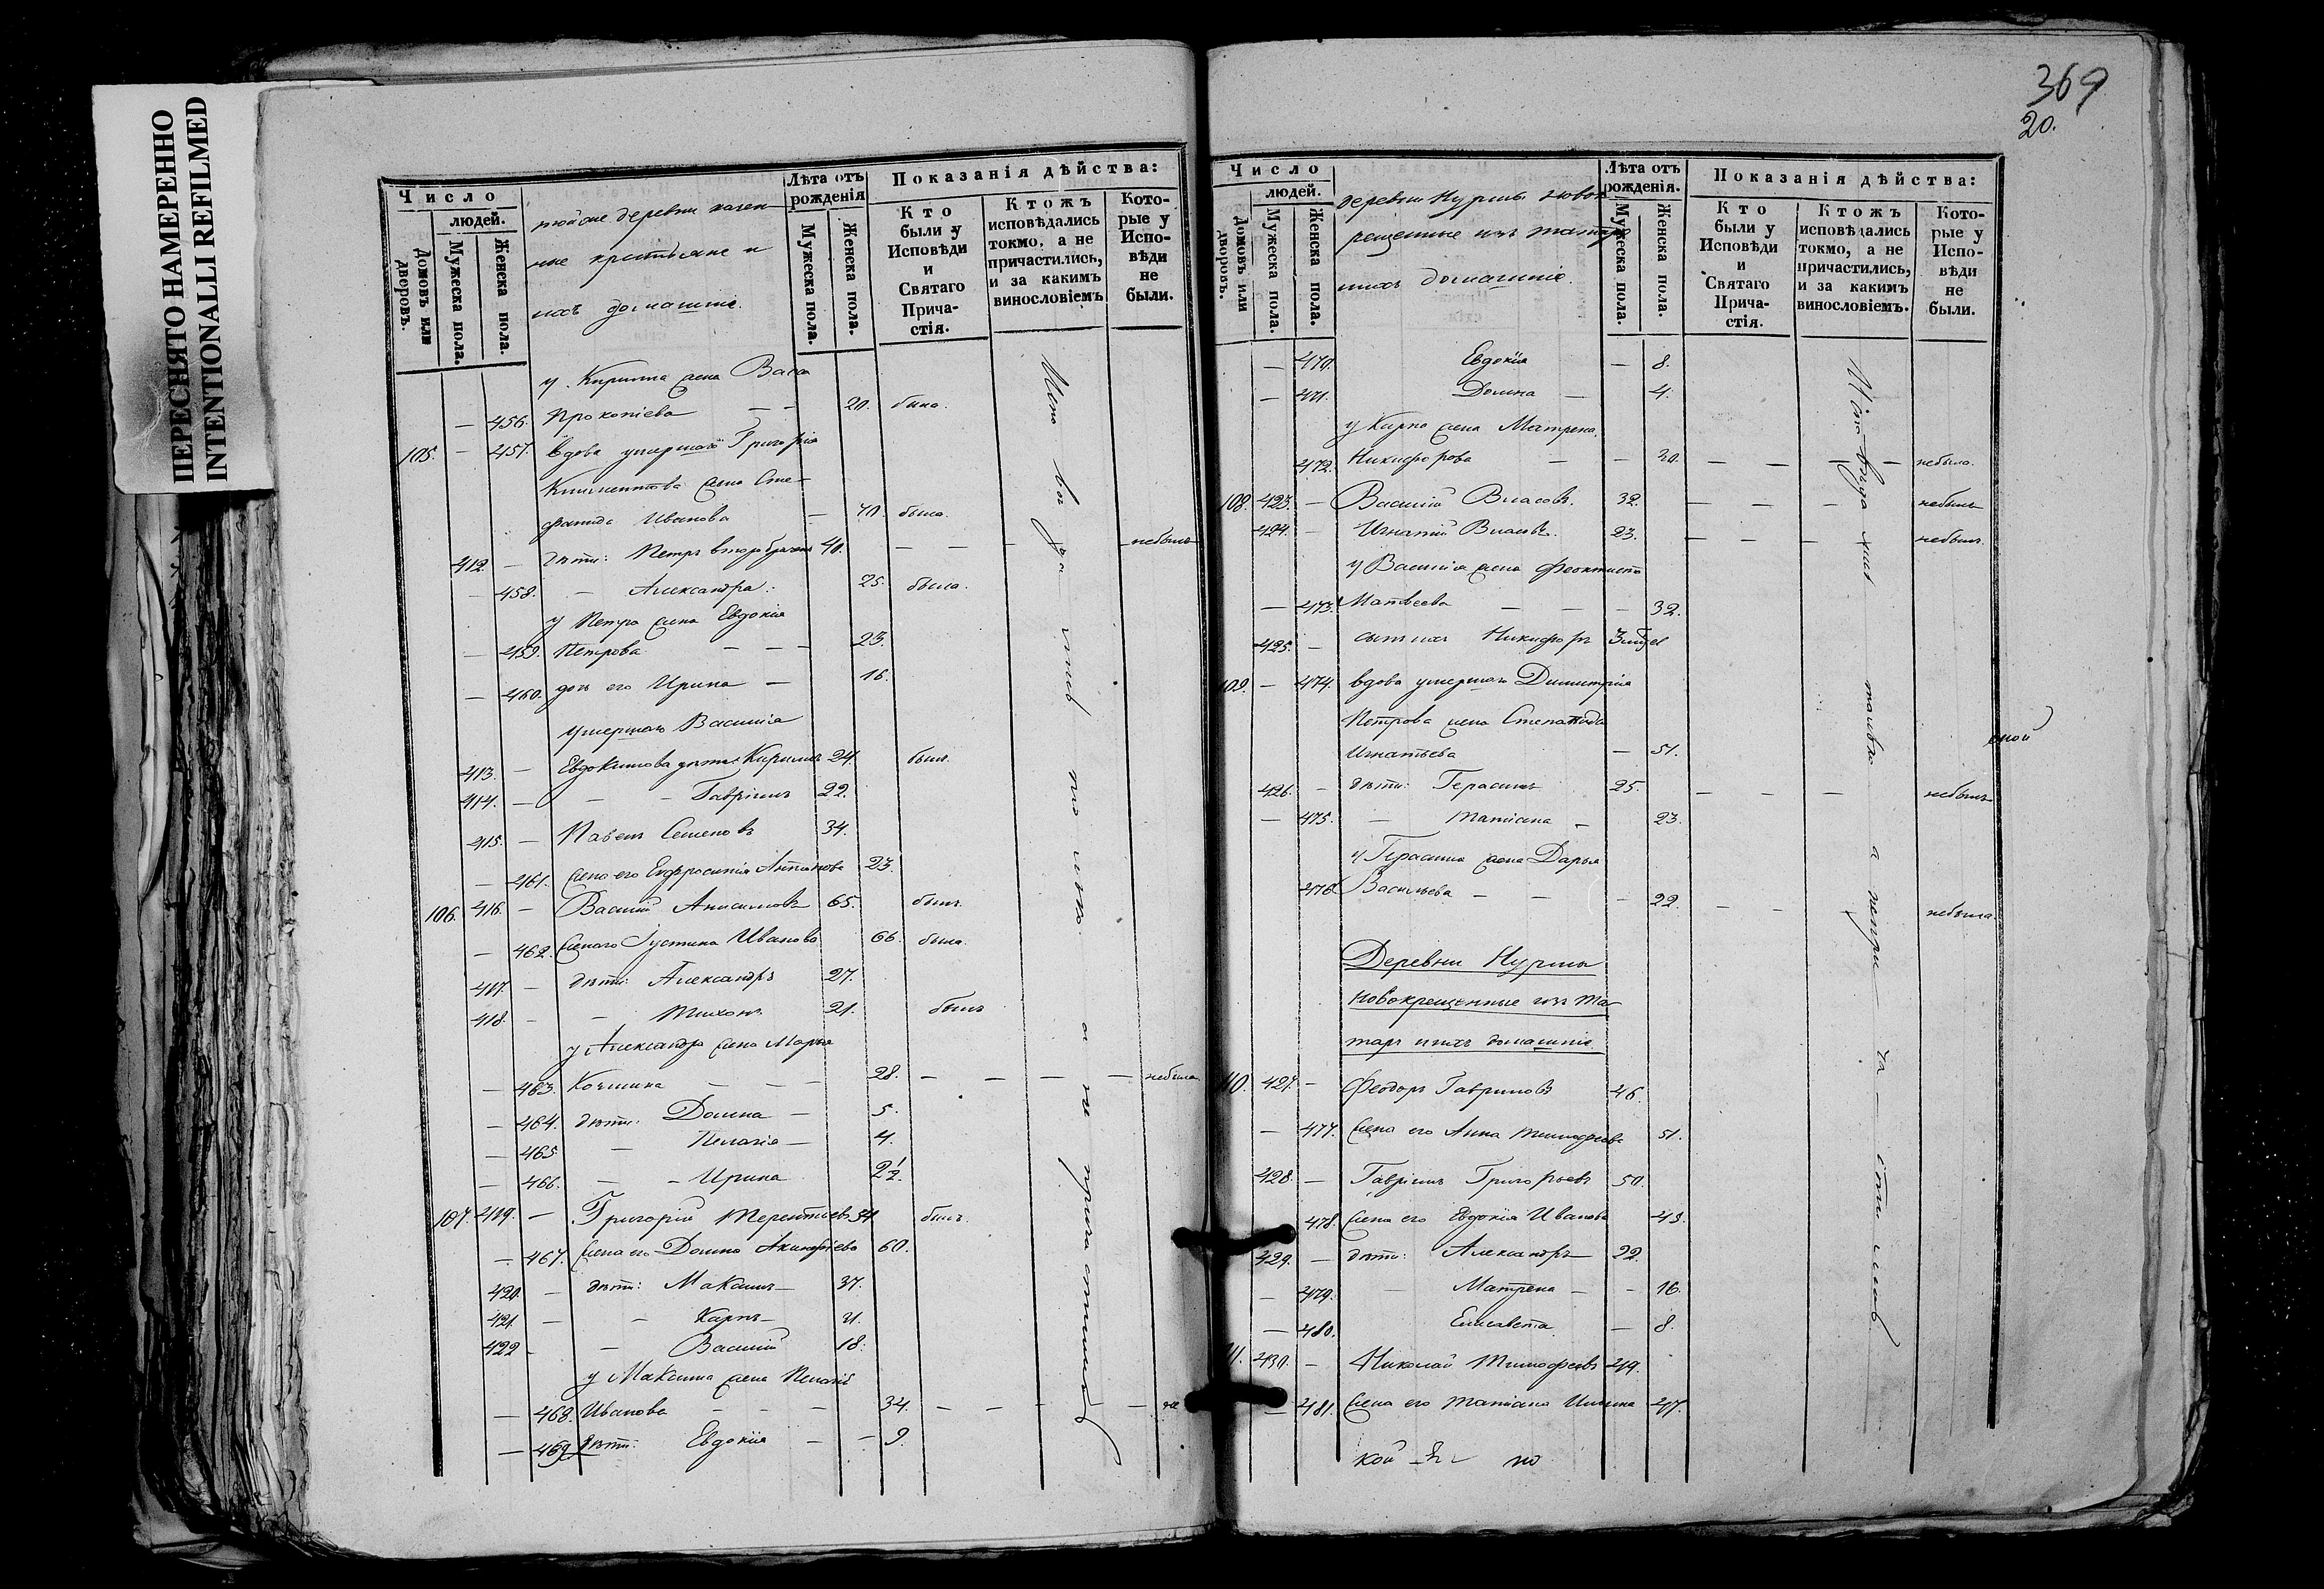 ПЕРЕСНЯТО НАМЕРЕННО
INTENTIONALLI REFILMED
Число
людей.
Домовъ или дверовъ.
Мужеска пола.
Женска пола.
тойже деревни казен
ные крестьяне и
ихъ домашніе.
Лѣта отъ рожденія
Мужеска пола.
Женска пола.
Показанія дѣйства:
Кто были у Исповѣди и Святаго Прича-стія.
Ктожъ исповѣдались токмо, а не причастились, и за какимъ винословіемъ
Кото-рые у Испо-вѣди не были.
у Кирилла жена Васса
— 456. Прокопіева — — 20. была.
105. — 457. Вдова умершаго Григорія
жена Сте-
фанида Иванова — 70. была.
412. — дѣти: Петръ 40. — — — небылъ
— 458. — Александра: 25. была.
у Петра жена Евдокія
— 459. Петрова — — — 23.
— 460. дочь его Ирина — 16.
умершаго Василія
413. — Евдокимова дѣти Кириллъ 24. былъ.
414. — — — Гавріилъ 22.
415. — Павелъ Семеновъ 34.
— 461. жена его Евфросинія Антонова 23.
106. 416. — Василій Анисимовъ 65. былъ.
— 462. жена его Іустина Иванова 66. была.
417. — дѣти: Александръ 27.
418. — — Тихонъ 21. былъ
у Александра жена Марья
— 463. Козмина — — — 28. — — — — небыла.
— 464. дѣти: Домна — 5.
— 465 — Пелагія — 4.
— 466. — — Ирина 2½.
107. 419. — Григорій Терентьевъ 54 былъ.
— 467. жена его Домна Акинфіева 60.
420. — дѣти: Максимъ — 37.
421. — — Карпъ — 21.
422 — — Василій 18.
у Максима жена Пелагія
— 468. Иванова — — — 34. — — — — не
— 469. дѣти: Евдокія — — 9.
369
20.
Число
людей.
Домовъ или дворовъ.
Мужеска пола.
Женска пола.
деревни Нурмы новок
рещенные изъ татаръ
ихъ домашніе.
Лѣта отъ рожденія.
Мужеска пола.
Женска пола.
Показанія дѣйства:
Кто были у Исповѣди и Святаго Прича-стія.
Ктожъ исповѣдались токмо, а не причастились, и за какимъ винословіемъ.
Кото-рые у Испо-вѣди не были.
— 470. Евдокія — 8.
— 471. Домна — 4.
у Карпа жена Матрена
472. Никифорова — — 20. — — — — небыла.
108. 423. — Василій Власовъ. 32. — — — небылъ
424. — Игнатій Власовъ. 23. — — — небылъ.
у Василія жена Феоктиста
— 473. Матвѣева — — — 32.
425. — сынъ ихъ Никифоръ
109. — 474. вдова умершаго Димитрія
Петрова жена Степанида
Игнатьева — 51.
426. — дѣти: Герасимъ 25. — — — небылъ
— 475. — Татіана — 23.
у Герасима жена Дарья
476 Васильева — — — 22. — — небыла.
Деревни Нурмы
новокрещенные изъ та-
таръ и ихъ домашніе.
110. 427. — Феодоръ Гавриловъ 46.
— 477. жена его Анна Тимофеева 51.
428. — Гавріилъ Григорьевъ 50.
478. жена его Евдокія Иванова 43.
429. — дѣти: Александръ 22.
— 479. — Матрена — — 16.
— 480. Елисавета — 8.
111. 430. — Николай Тимофеевъ 49.
— 481. жена его Татіана Ильина 47.
кой по